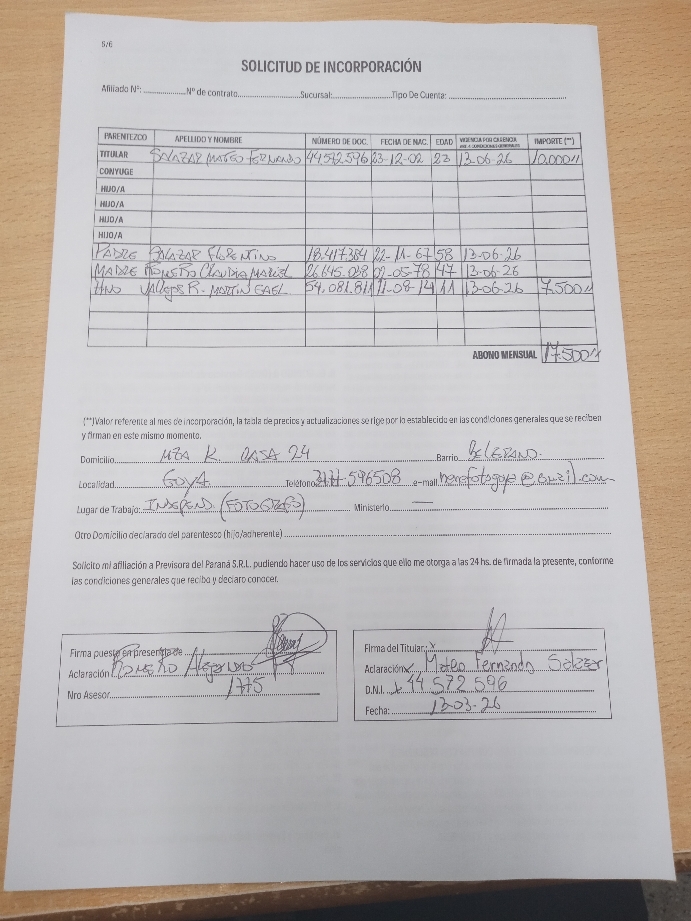 5/6
SOLICITUD DE INCORPORACIÓN
Afiliado Nº: Nº de contrato Sucursal: Tipo De Cuenta:
PARENTEZCO APELLIDO Y NOMBRE NÚMERO DE DOC. FECHA DE NAC. EDAD VIGENCIA POR CARENCIA IMPORTE (**)
TITULAR SALAZAR MATEO FERNANDO 44572596 23-12-02 23 13-06-26 10.000
CONYUGE
HIJO/A
HIJO/A
HIJO/A
HIJO/A
PADRE SALAZAR FLORENTINO 18.417.364 22-11-67 58 13-06-26
MADRE ROMERO CLAUDIA MARISEL 26.645.028 02-05-78 47 13-06-26
HNO VALLEJOS R. MARTIN GAEL 54.081.811 11-08-14 11 13-06-26 7.500
ABONO MENSUAL 17.500
(**)Valor referente al mes de incorporación, la tabla de precios y actualizaciones se rige por lo establecido en las condiciones generales que se reciben
y firman en este mismo momento.
Domicilio MZA K CASA 24 Barrio BELGRANO
Localidad GOYA Teléfono 596508 e-mail
Lugar de Trabajo: INDEPEND (FOTOGRAFO) Ministerio
Otro Domicilio declarado del parentesco (hijo/adherente)
Solicito mi afiliación a Previsora del Paraná S.R.L. pudiendo hacer uso de los servicios que ello me otorga a las 24 hs. de firmada la presente, conforme
las condiciones generales que recibo y declaro conocer.
Firma puesta en presencia de
Aclaración ROMERO Alejandro
Nro Asesor 1775
Firma del Titular: x
Aclaración x Mateo Fernando Salazar
D.N.I. x 44 572 596
Fecha: 13-03-26